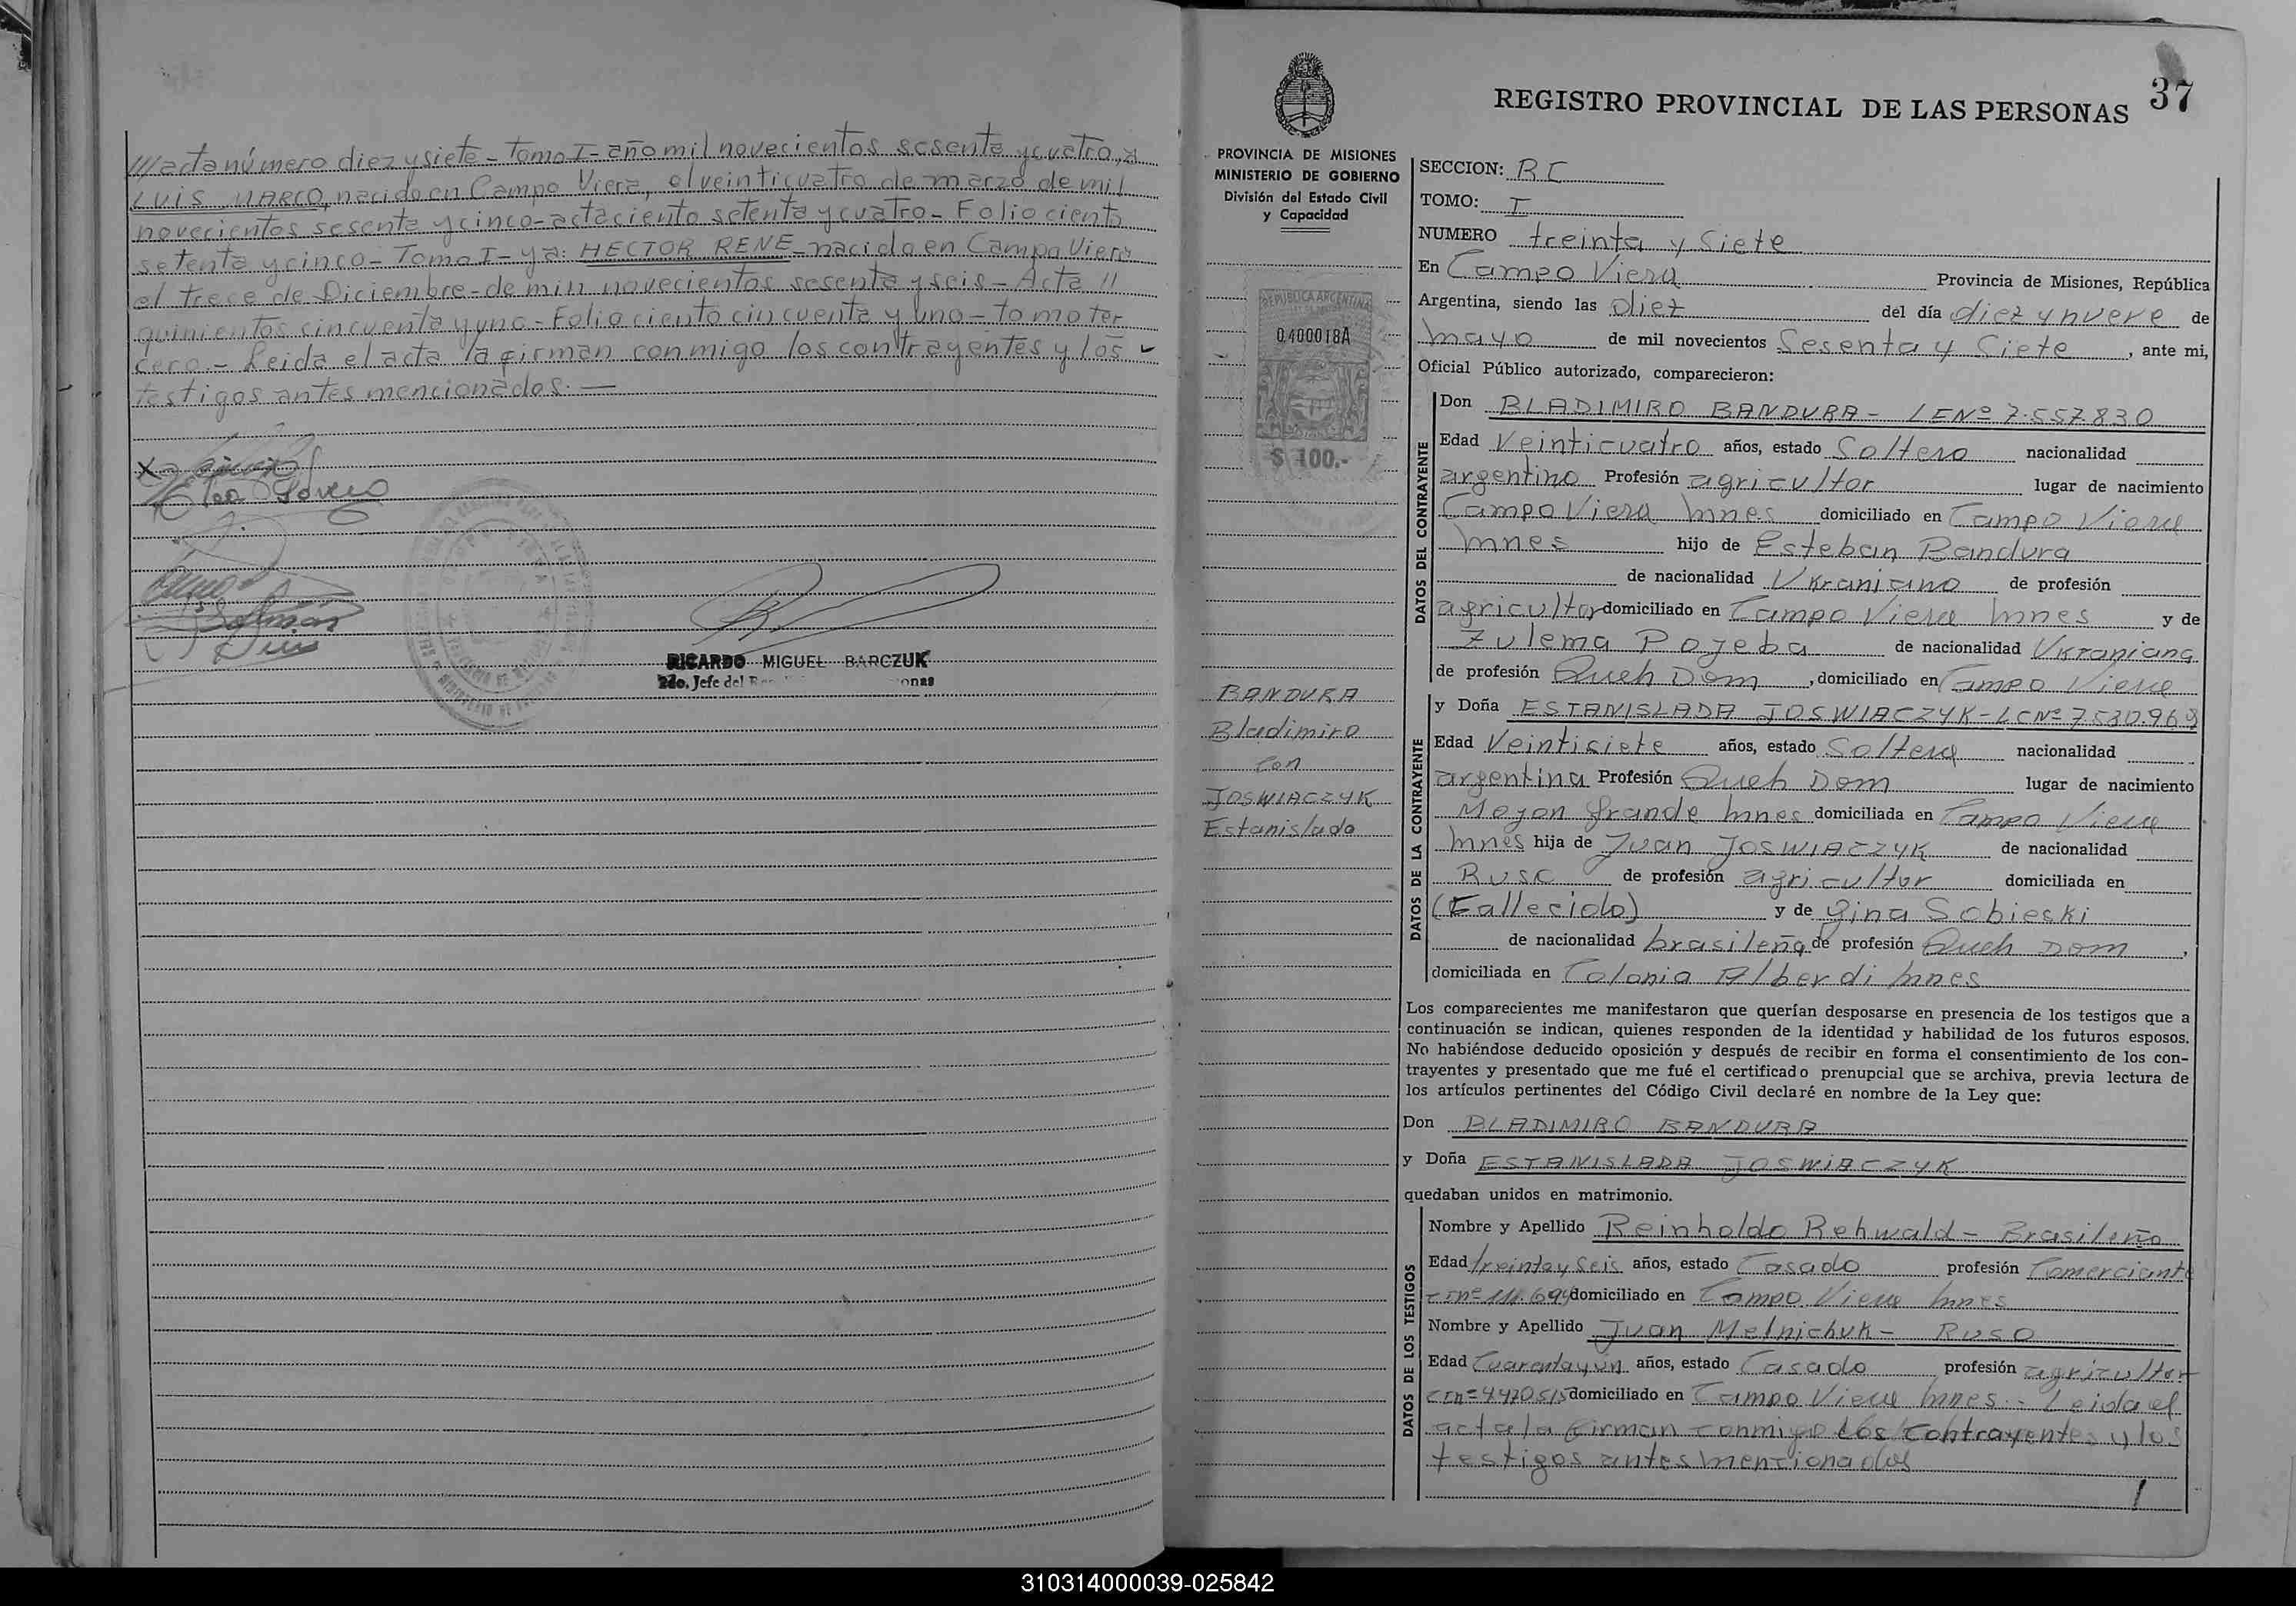 /// acta número diez y siete - Tomo I - año mil novecientos sesenta y cuatro, a
LUIS MARCO, nacido en Campo Viera, el veinticuatro de marzo de mil
novecientos sesenta y cinco - acta ciento setenta y cuatro - Folio ciento
setenta y cinco - Tomo I - y a: HECTOR RENE - nacido en Campo Viera
el trece de Diciembre - de mil novecientos sesenta y seis - Acta //
quinientos cincuenta y uno - Folio ciento cincuenta y uno - tomo ter
cero. - Leida el acta la firman conmigo los contrayentes y los
testigos antes mencionados. —
RICARDO MIGUEL BARCZUK
2do. Jefe del
37
REGISTRO PROVINCIAL DE LAS PERSONAS
PROVINCIA DE MISIONES
MINISTERIO DE GOBIERNO
División del Estado Civil
y Capacidad
REPUBLICA ARGENTINA
0400018A
$ 100.-
BANDURA
Bladimiro
con
JOSWIACZYK
Estanislada
SECCION: RC
TOMO: I
NUMERO treinta y Siete
En Campo Viera Provincia de Misiones, República
Argentina, siendo las diez del día diez y nueve de
mayo de mil novecientos Sesenta y Siete, ante mi,
Oficial Público autorizado, comparecieron:
DATOS DEL CONTRAYENTE
Don BLADIMIRO BANDURA - LENº 7.557.830
Edad Veinticuatro años, estado Soltero nacionalidad
argentino Profesión agricultor lugar de nacimiento
Campo Viera Mnes domiciliado en Campo Viera
Mnes hijo de Esteban Bandura
de nacionalidad Ukraniano de profesión
agricultor domiciliado en Campo Viera Mnes y de
Zulema Pojeba de nacionalidad Ukraniana
de profesión Queh Dom, domiciliado en Campo Viera
DATOS DE LA CONTRAYENTE
y Doña ESTANISLADA JOSWIACZYK - LCNº 7.530.968
Edad Veintisiete años, estado Soltera nacionalidad
argentina Profesión Queh Dom lugar de nacimiento
Mojon Grande Mnes domiciliada en Campo Viera
Mnes hija de Juan JOSWIACZYK de nacionalidad
Ruso de profesión agricultor domiciliada en
(Fallecido) y de Gina Sobieski
de nacionalidad brasileña de profesión Queh Dom,
domiciliada en Colonia Alberdi Mnes
Los comparecientes me manifestaron que querían desposarse en presencia de los testigos que a
continuación se indican, quienes responden de la identidad y habilidad de los futuros esposos.
No habiéndose deducido oposición y después de recibir en forma el consentimiento de los con-
trayentes y presentado que me fué el certificado prenupcial que se archiva, previa lectura de
los artículos pertinentes del Código Civil declaré en nombre de la Ley que:
Don BLADIMIRO BANDURA
y Doña ESTANISLADA JOSWIACZYK
quedaban unidos en matrimonio.
DATOS DE LOS TESTIGOS
Nombre y Apellido Reinholdo Rehwald - Brasileño
Edad treinta y Seis años, estado Casado profesión Comerciante
domiciliado en Campo Viera Mnes
Nombre y Apellido Juan Melnichuk - Ruso
Edad Cuarenta y un años, estado Casado profesión agricultor
domiciliado en Campo Viera Mnes.- Leida el
acta la firman conmigo los Contrayentes y los
testigos antes mencionados
310314000039-025842